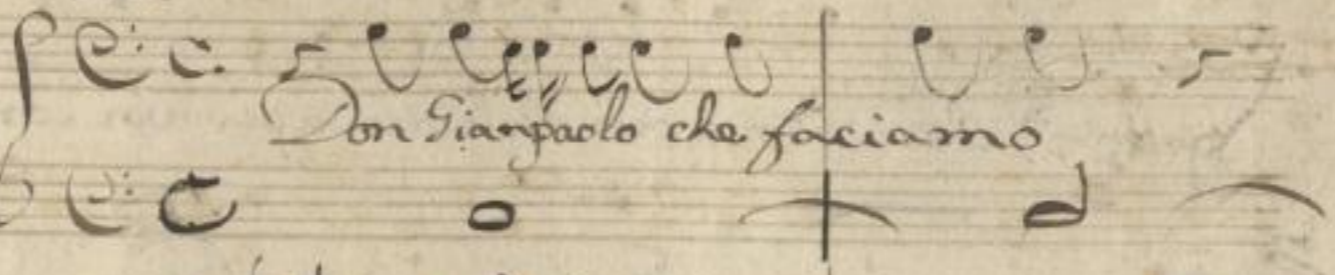 Don Gianpaolo che faciamo